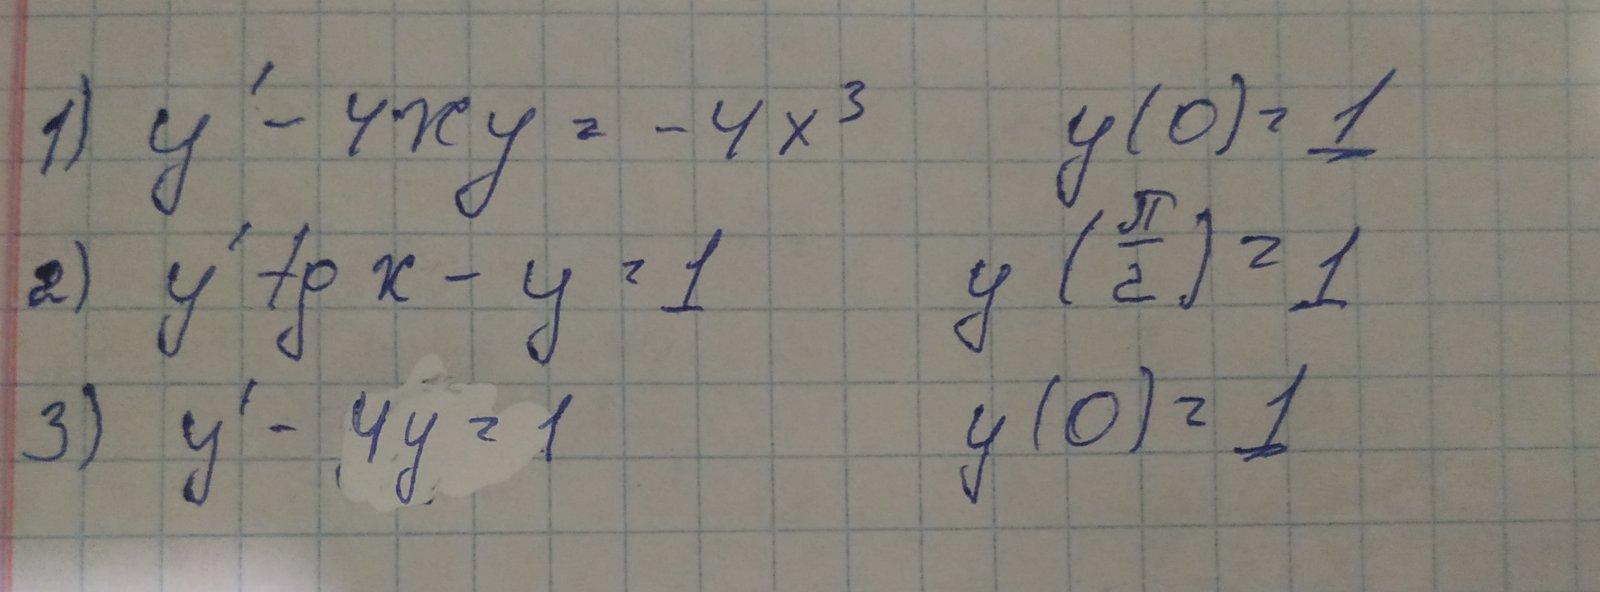 1) y' - 4xy = -4x³ y(0) = 1
2) y' tg x - y = 1 y(π/2) = 1
3) y' - 4y = 1 y(0) = 1